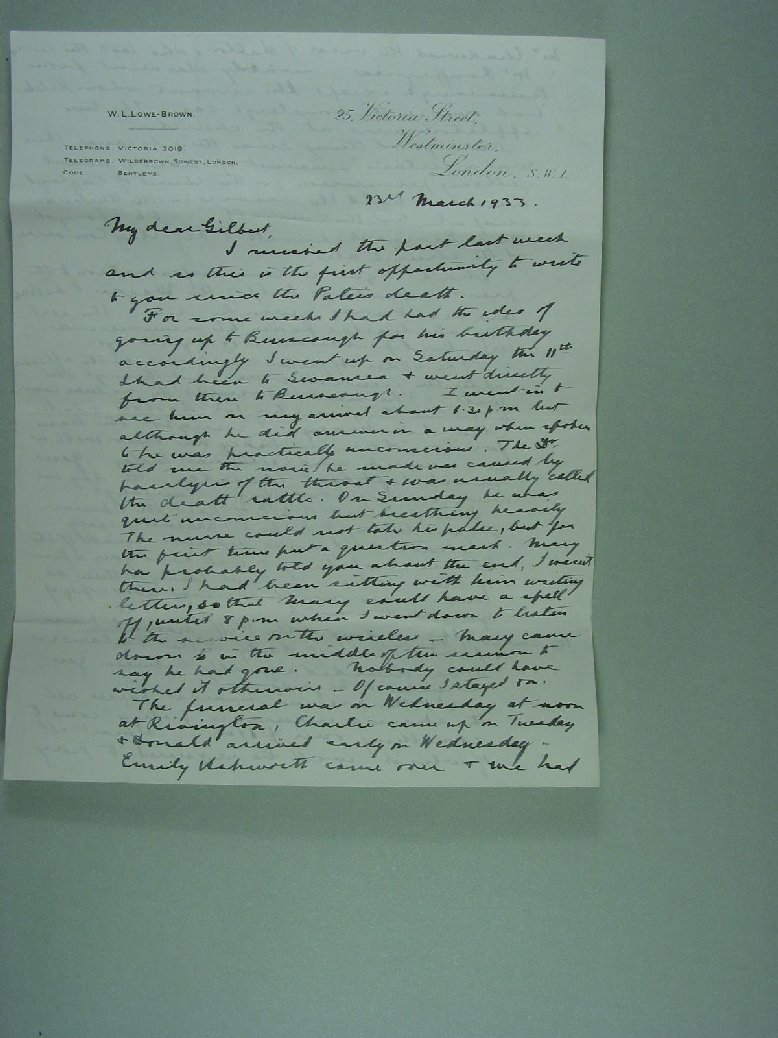 W. L. LOWE-BROWN.
TELEPHONE VICTORIA 3019.
TELEGRAMS WILDEBROWN, SOWEST, LONDON.
CODE BENTLEYS.
25, Victoria Street,
Westminster,
London, S.W.1.
23rd March 1933.
My dear Gilbert,
I missed the post last week
and so this is the first opportunity to write
to you since the Paters death.
For some weeks I had had the idea of
going up to Burscough for his birthday
accordingly I went up on Saturday the 11th
I had been to Swansea & went directly
from there to Burscough. I went in to
see him on my arrival about 6.30 p m but
although he did answer in a way when spoken
to he was practically unconscious. The Dr
told me the noise he made was caused by
paralysis of the throat & was usually called
the death rattle. On Sunday he was
quit unconscious but breathing heavily
The nurse could not take his pulse, but for
the first time put a question mark. Mary
has probably told you about the end, I wasnt
there, I had been sitting with him writing
letters, so that Mary could have a spell
off, until 8 p.m. when I went down to listen
to the service on the wireless – Mary came
down in the middle of the sermon to
say he had gone. Nobody could have
wished it otherwise – Of course I stayed on.
The funeral was on Wednesday at noon
at Rivington, Charlie came up on Tuesday
& Donald arrived early on Wednesday –
Emily Ashworth came over & we had